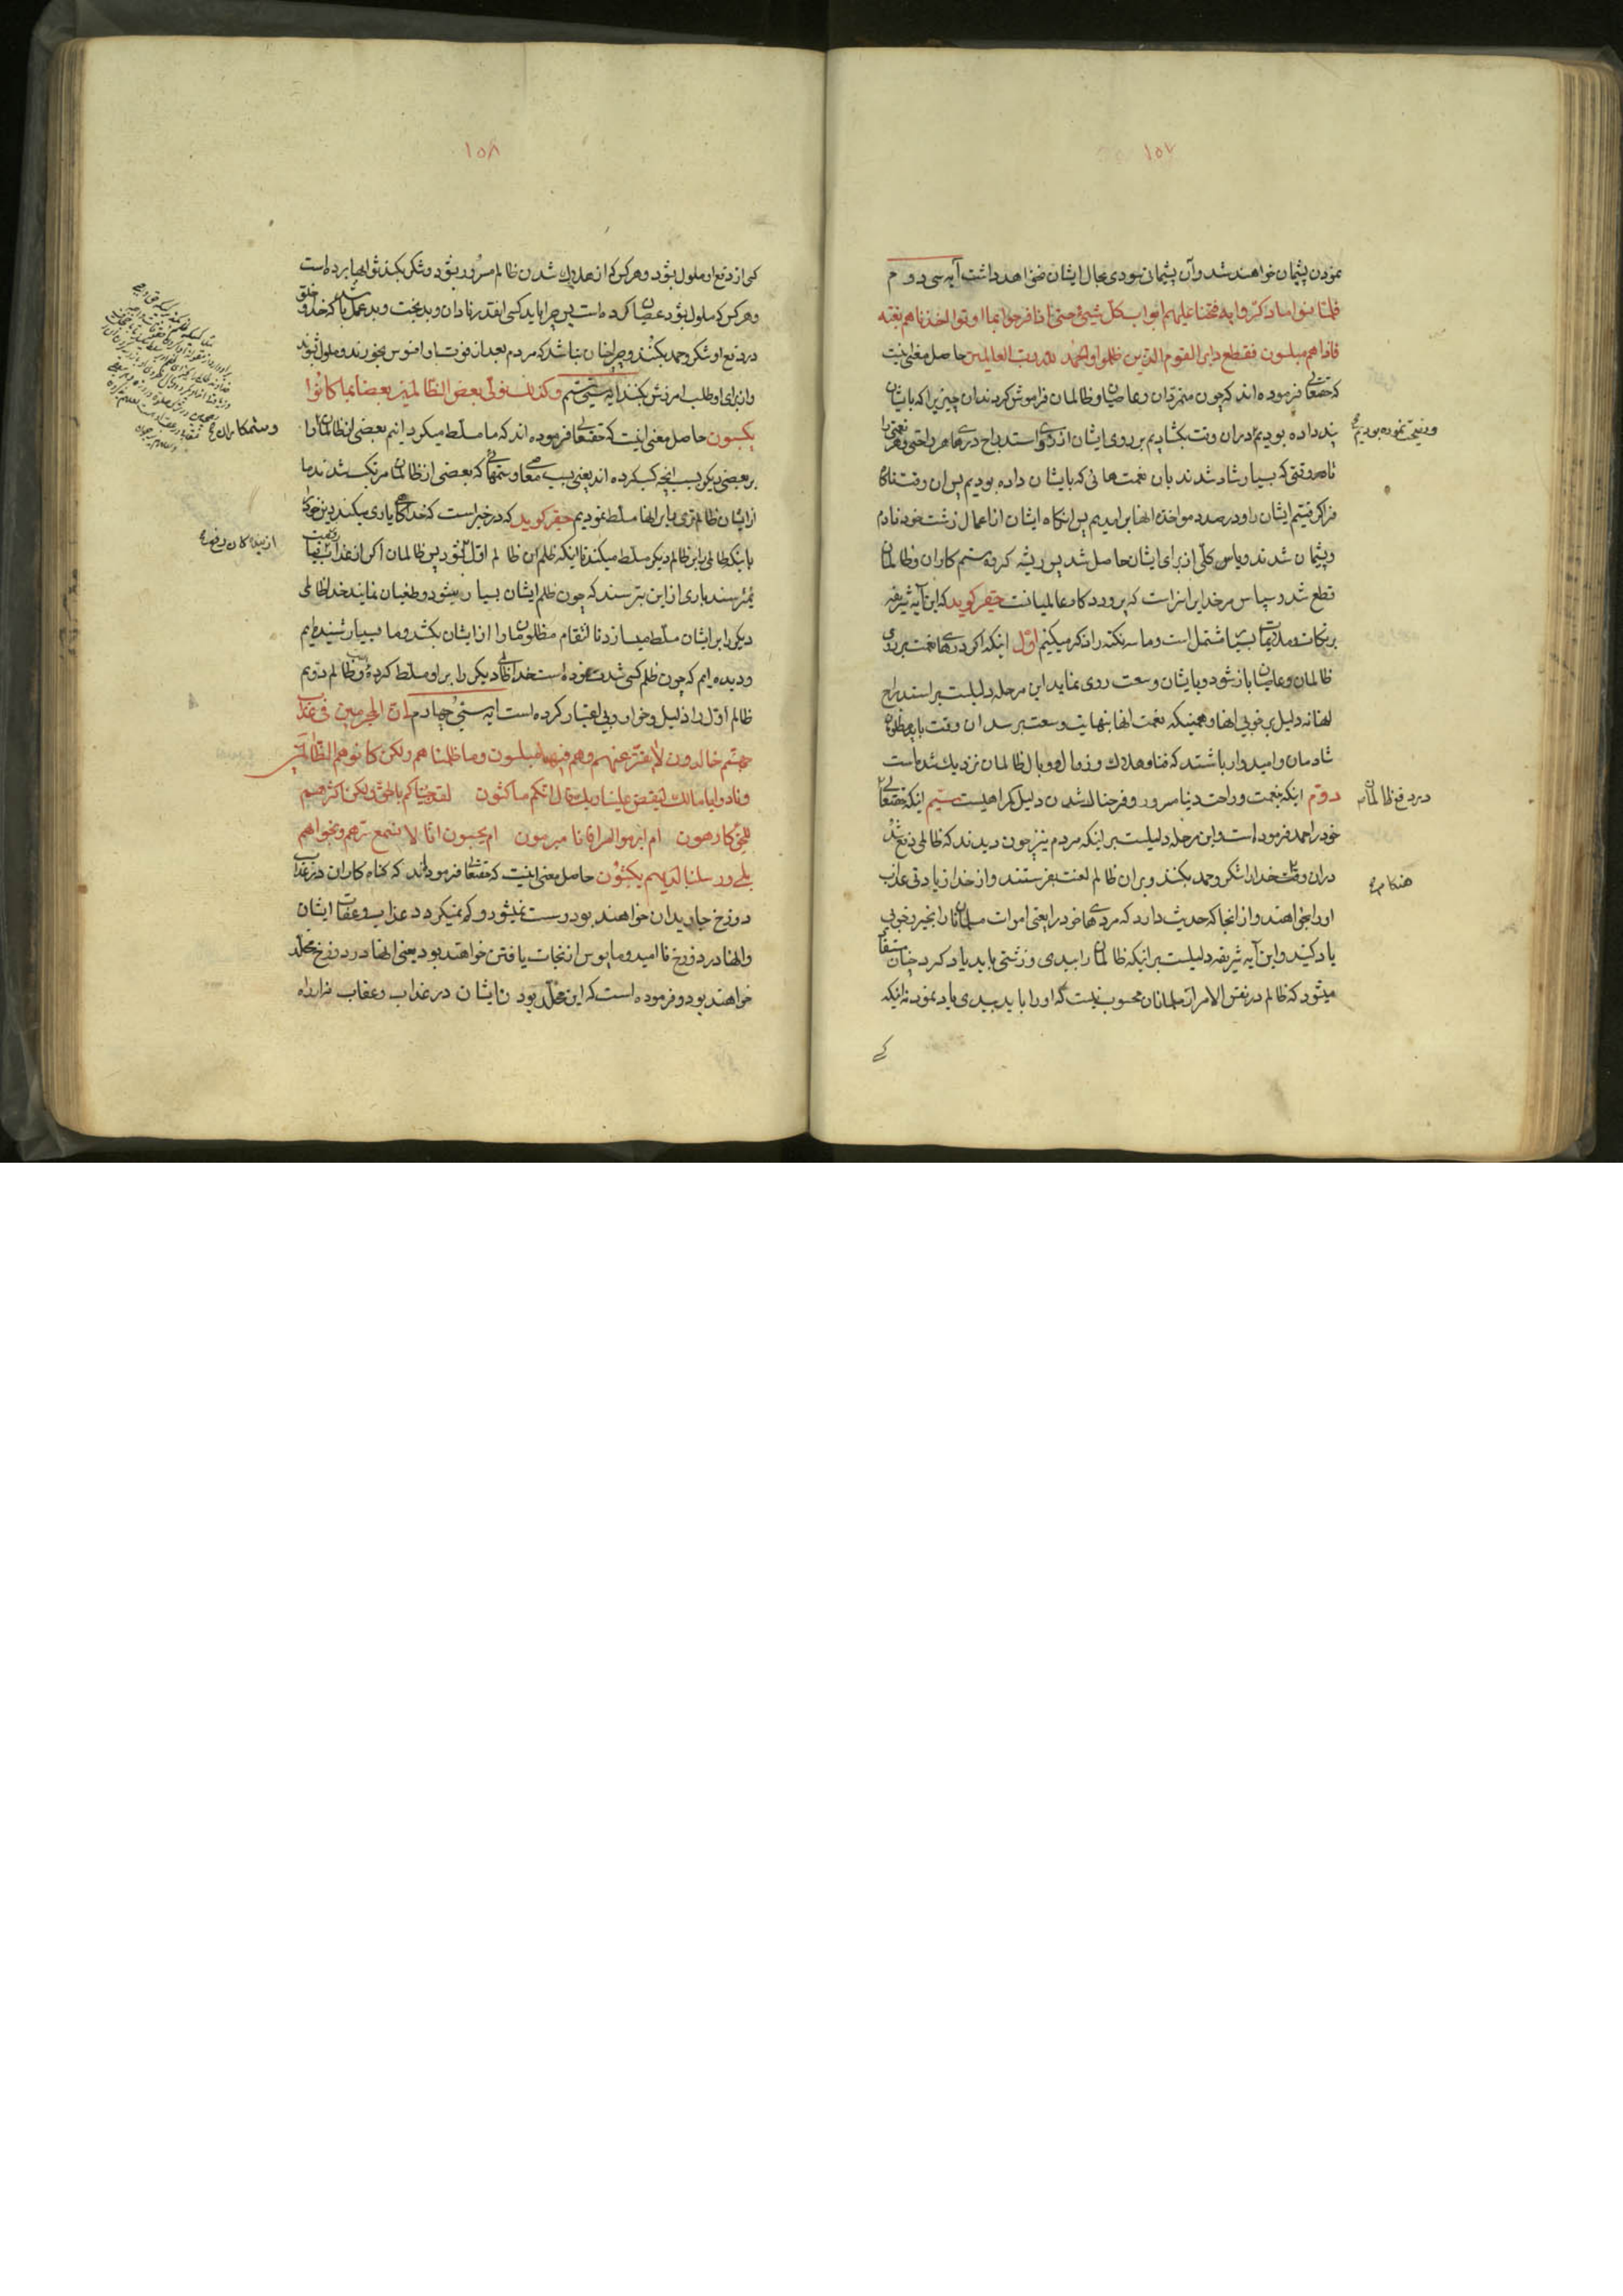 ۱۵۷
نمودن پشیمان خواهند شد و آن پشیمانی سودی بحال ایشان نخواهد داشت آیه سی و دوم
فلمّا نسوا ما ذکّروا به فتحنا علیهم ابواب کلّ شیئ حتی اذا فرحوا بما اوتوا اخذناهم بغتة
فاذا هم مبلسون فقطع دابر القوم الذین ظلموا و الحمد للّه ربّ العالمین حاصل معنی اینست
که حقتعالی فرموده اند که چون متمرّدان و عاصیان و ظالمان فراموش کردند آن چیزیرا که بایشان
پند داده بودیم در آن وقت بکشادیم بر روی ایشان از روی استدراج درهای هر راحتی و هر نعمتی را
و نصیحت نموده بودیم
تا هر وقتی که بسیار شاد شدند بان نعمت هائی که بایشان داده بودیم پس آن وقت ناکاه
فرا کرفتیم ایشان را و در صدد مواخذه انها برامدیم پس انکاه ایشان از اعمال زشت خود نادم
و پشیمان شدند و یاس کلّی از برای ایشان حاصل شد پس ریشه کروه ستم کاران و ظالمان
قطع شد و سپاس مر خدایرا سزاست که پروردکار عالمیانست حقیر کوید که این آیه شریفه
بر نکات و مدّعیات بسیار مشتمل است و ما سه نکته را ذکر میکنیم اوّل اینکه اکر درهای نعمت بر روی
ظالمان و عاصیان باز شود و بایشان وسعت روی نماید این مرحله دلیلست بر استدراج
انها نه دلیل بر خوبی انها و همینکه نعمت انها بنهایت وسعت برسد ان وقت باید مظلومان
شادمان و امیدوار باشند که فنا و هلاک و زوال و وبال ظالمان نزدیک شده است
دوّم اینکه بنعمت و راحت دنیا مسرور و فرحناک شدن دلیل کمراهیست سیّم اینکه حقتعالی
در دفع ظالمان
خود را حمد فرموده است و این مرحله دلیلست بر اینکه مردم نیز چون دیدند که ظالمی دفع شد
در ان وقت خدا را شکر و حمد بکنند و بر ان ظالم لعنت بفرستند و از خدا زیادتی عذاب
هنکام
او را بخواهند و از انجا که حدیث دارد که مردهای خود را یعنی اموات مسلمانان را بخیر و خوبی
یاد کنید و این آیه شریفه دلیلست بر اینکه ظالمان را ببدی و زشتی باید یاد کرد چنان مستفاد
میشود که ظالم در نفس الامر از مسلمانان محسوب نیست که او را باید ببدی یاد نمود نه اینکه
۱۵۸
کسی از دفع او ملول بشود و هر کس که از هلاک شدن ظالم مسرور بشود و شکر بکند ثوابها برده است
و هر کس که ملول بشود عصیان کرده است پس چرا باید کسی انقدر نادان و بدبخت و بد عمل باشد که خدا و خلق
در دفع او شکر و حمد بکنند و چرا چنان نباشد که مردم بعد از فوت او افسوس بخورند و ملول شوند
و از برای او طلب امرزش بکنند آیه سی و سیّم و کذلک نولّی بعض الظالمین بعضا بما کانوا
یکسبون حاصل معنی اینست که حقتعالی فرموده اند که ما مسلّط میکردانیم بعضی از ظالمان را
و ستمکاران
بر بعضی دیکر بسبب انچه کسب کرده اند یعنی بسبب معاصی و ستمهائی که بعضی از ظالمان مرتکب شدند ما
از ایشان ظالم تری را بر انها مسلّط نمودیم حقیر کوید که در خبر است که خدا کاهی یاری میکند دین خود را
باینکه ظالمی را بر ظالم دیکر مسلّط میکند تا اینکه ظلم ان ظالم اوّل نشود پس ظالمان اکر از عذاب قیامت
نمیترسند باری از این بترسند که چون ظلم ایشان بسیار میشود و طغیان نمایند خدا ظالمی
دیکر را بر ایشان مسلّط میسازد تا انتقام مظلومان را از ایشان بکشد و ما بسیار شنیده ایم
و دیده ایم که چون ظلم کسی شدّت نموده است خدا ظالمی دیکر را بر او مسلّط کرده و ظالم دوّیم
ظالم اوّل را ذلیل و خوار و بی اعتبار کرده است آیه سی و چهارم انّ المجرمین فی عذاب
جهنّم خالدون لا یفتّر عنهم و هم فیه مبلسون و ما ظلمناهم و لکن کانوا هم الظّالمین
و نادوا یا مالک لیقض علینا ربّک قال انّکم ماکثون لقد جئناکم بالحقّ و لکن اکثرهم
للحقّ کارهون ام ابرموا امرا فانّا مبرمون ام یحسبون انّا لا نسمع سرّهم و نجواهم
بلی و رسلنا لدیهم یکتبون حاصل معنی اینست که حقتعالی فرموده اند که کناه کاران در عذاب
دوزخ جاویدان خواهند بود و سست نمیشود و کم نمیکردد عذاب و عقاب ایشان
و انها در دوزخ نا امید و مایوس از نجات یافتن خواهند بود یعنی انها در دوزخ مخلّد
خواهند بود و فرموده است که این مخلّد بودن ایشان در عذاب و عقاب نه از راه